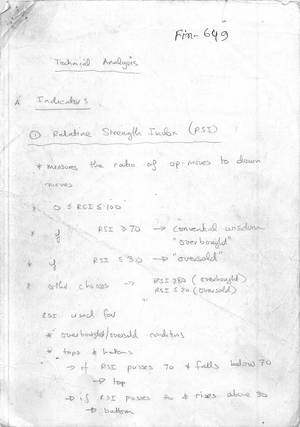 Fin-649
Technical Analysis
A Indicators
① Relative Strength Index (RSI)
* measures the ratio of up-moves to down
moves
* 0 ≤ RSI ≤ 100
* if RSI ≥ 70 → conventional wisdom
"overbought"
* if RSI ≤ 30 → "oversold"
* other choices → RSI ≥ 80 (overbought)
RSI ≤ 20 (oversold)
RSI used for
* overbought/oversold conditions
* tops & bottoms
→ if RSI passes 70 & falls below 70
→ top
→ if RSI passes 30 & rises above 30
→ bottom